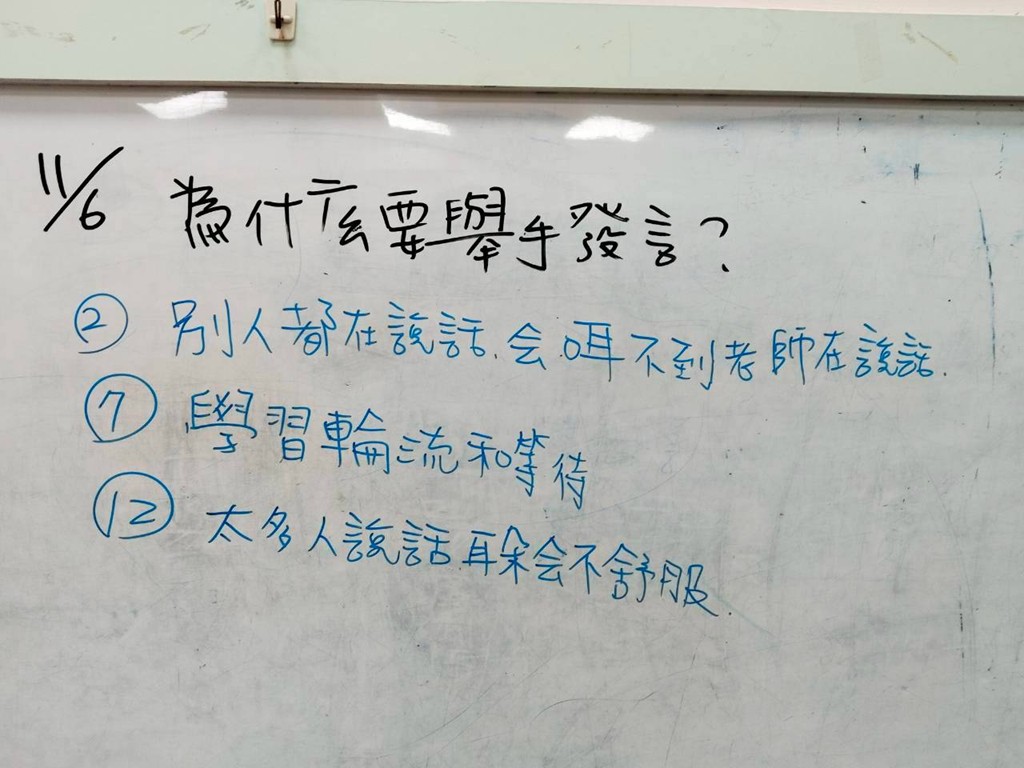 11/6 為什么要舉手發言?
② 別人都在說話.会咡不到老師在說話.
⑦ 學習輪流和等待
⑫ 太多人說話耳朵会不舒服.